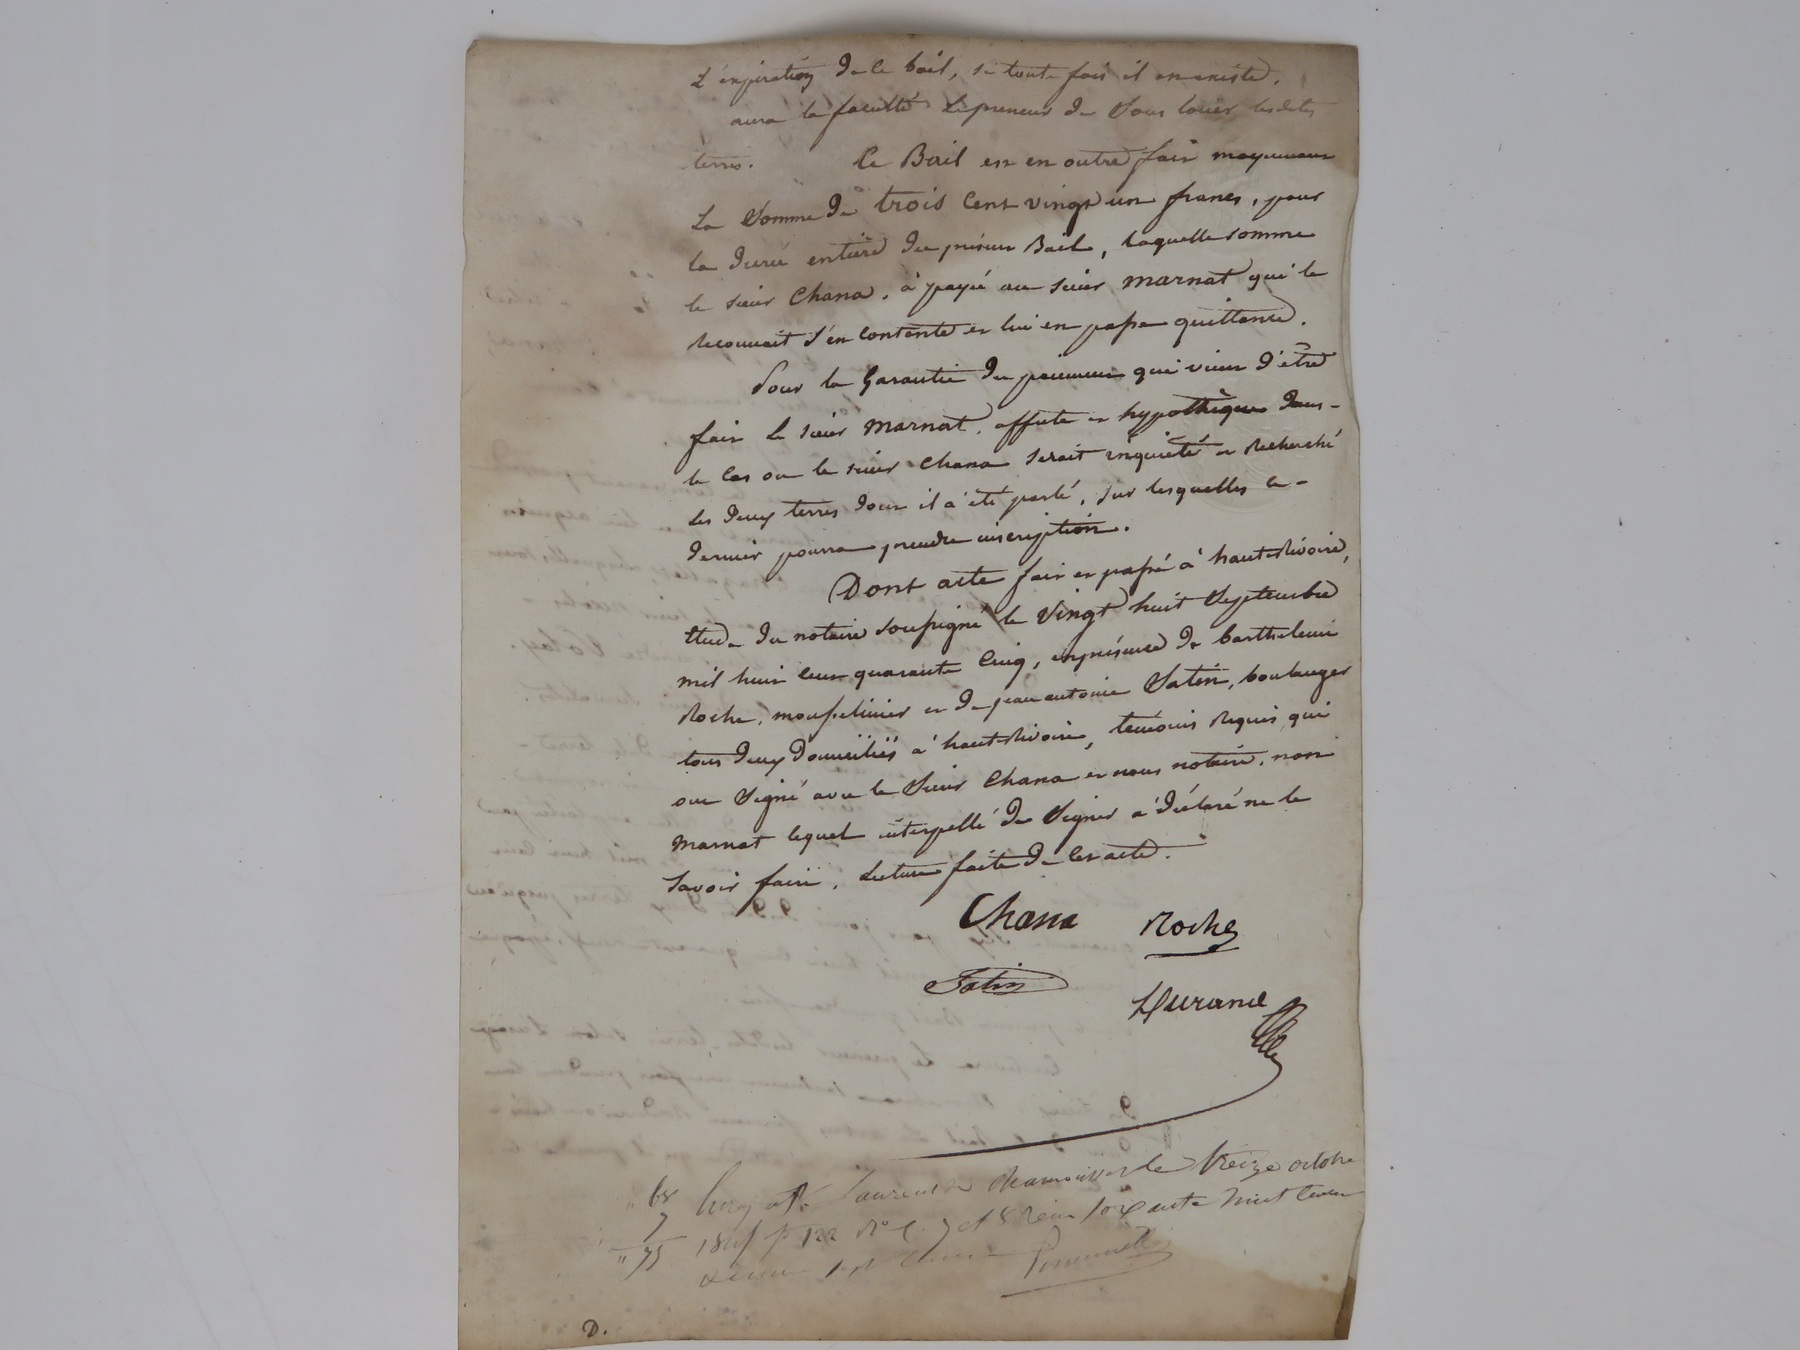 L'éxpiration de ce bail, si toute fois il en existe.
aura la faculté le preneur de Sous louer lesdites
terres. Ce Bail est en outre fait moyennant
La Somme de trois Cent vingt un francs, pour
la durée entière du présent Bail, laquelle somme
le sieur Chana, à payé au sieur marnat qui le
reconnait s'en contente et lui en passe quittance.
Pour la Garantie du paiement qui vient d'être
fait le sieur marnat, affecte et hypothèque dans-
le Cas ou le sieur Chana Serait inquiété et Recherché
les deux terres dont il a été parlé, sur lesquelles ce-
dernier pourra prendre inscription.
Dont acte fait et passé à hauterivoire,
étude du notaire soussigné le Vingt huit Septembre
mil huit cent quarante Cinq, en présence de barthelemi
Roche, mousselinier et de jean antoine Satin, boulanger
tous deux Domiciliés à hauterivoire, témoins Requis qui
ont Signé avec le Sieur Chana et nous notaire, non
marnat lequel interpellé de Signer a déclaré ne le
Savoir faire, Lecture faite de cet acte.
Chana Roche
Satin
Durand
" 68 Laurent de Chamousset le treize octobre
7 1845 f° 122 R° C. 7 et 8 Reçu soixante huit Cent
" 75 Décime sept Cent
D.